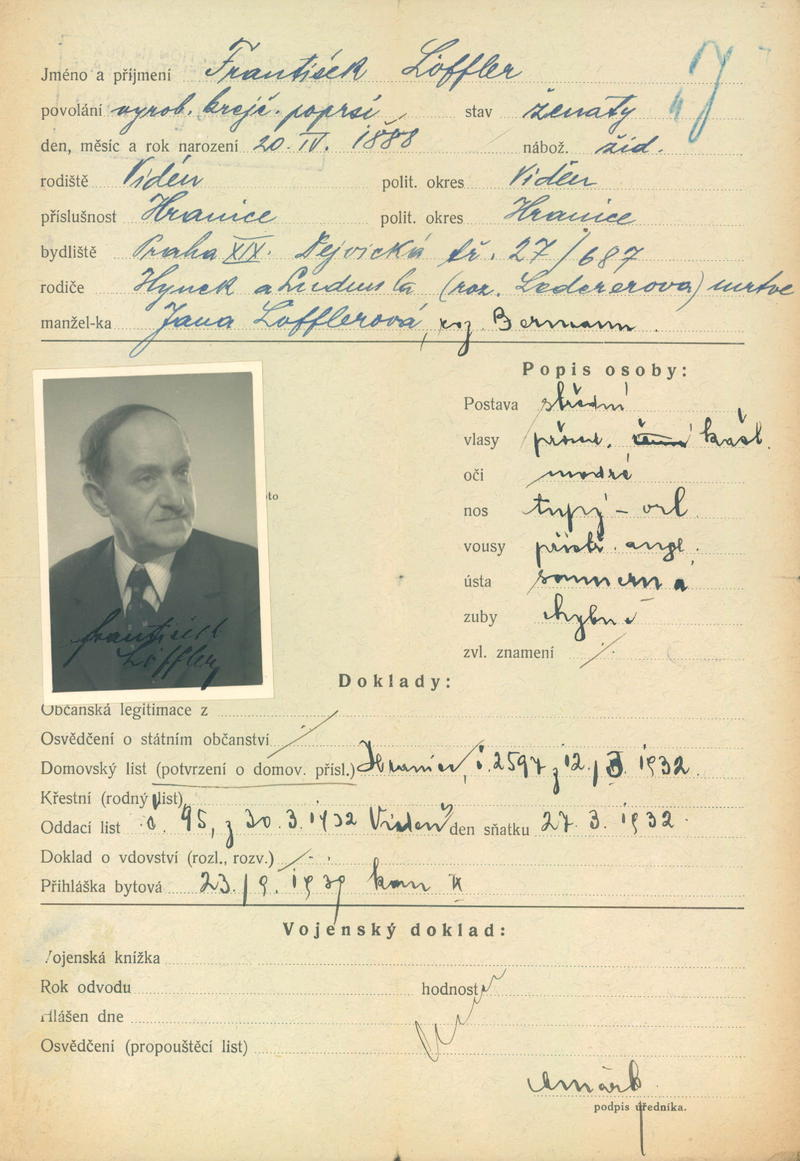 Jméno a příjmení František Löffler
povolání vyrob. krejč. poprsí stav ženatý
den, měsíc a rok narození 20. IV. 1888 nábož. žid.
rodiště Vídéň polit. okres Viděn
příslušnost Hranice polit. okres Hranice
bydliště Praha XIX. Dejvická tř. 27/687
rodiče Hynek a Ludmila (roz. Ledererova) mrtve
manžel-ka Jana Lofflerová, roz. Bermann.
Popis osoby:
Postava střední
vlasy kašt.
oči modré
nos tupý – orl.
vousy angl.
ústa souměrná
zuby chybné
zvl. znamení
František
Löffler
Doklady:
Občanská legitimace z
Osvědčení o státním občanství
Domovský list (potvrzení o domov. přísl.) Hranice, č. 2597 z 12./3. 1932.
Křestní (rodný list)
Oddací list č. 95, z 30. 3. 1932 Vídeň den sňatku 27. 3. 1932.
Doklad o vdovství (rozl., rozv.)
Přihláška bytová 23./9. 1939 kom
Vojenský doklad:
Vojenská knížka
Rok odvodu hodnost
Hlášen dne
Osvědčení (propouštěcí list)
podpis úředníka.